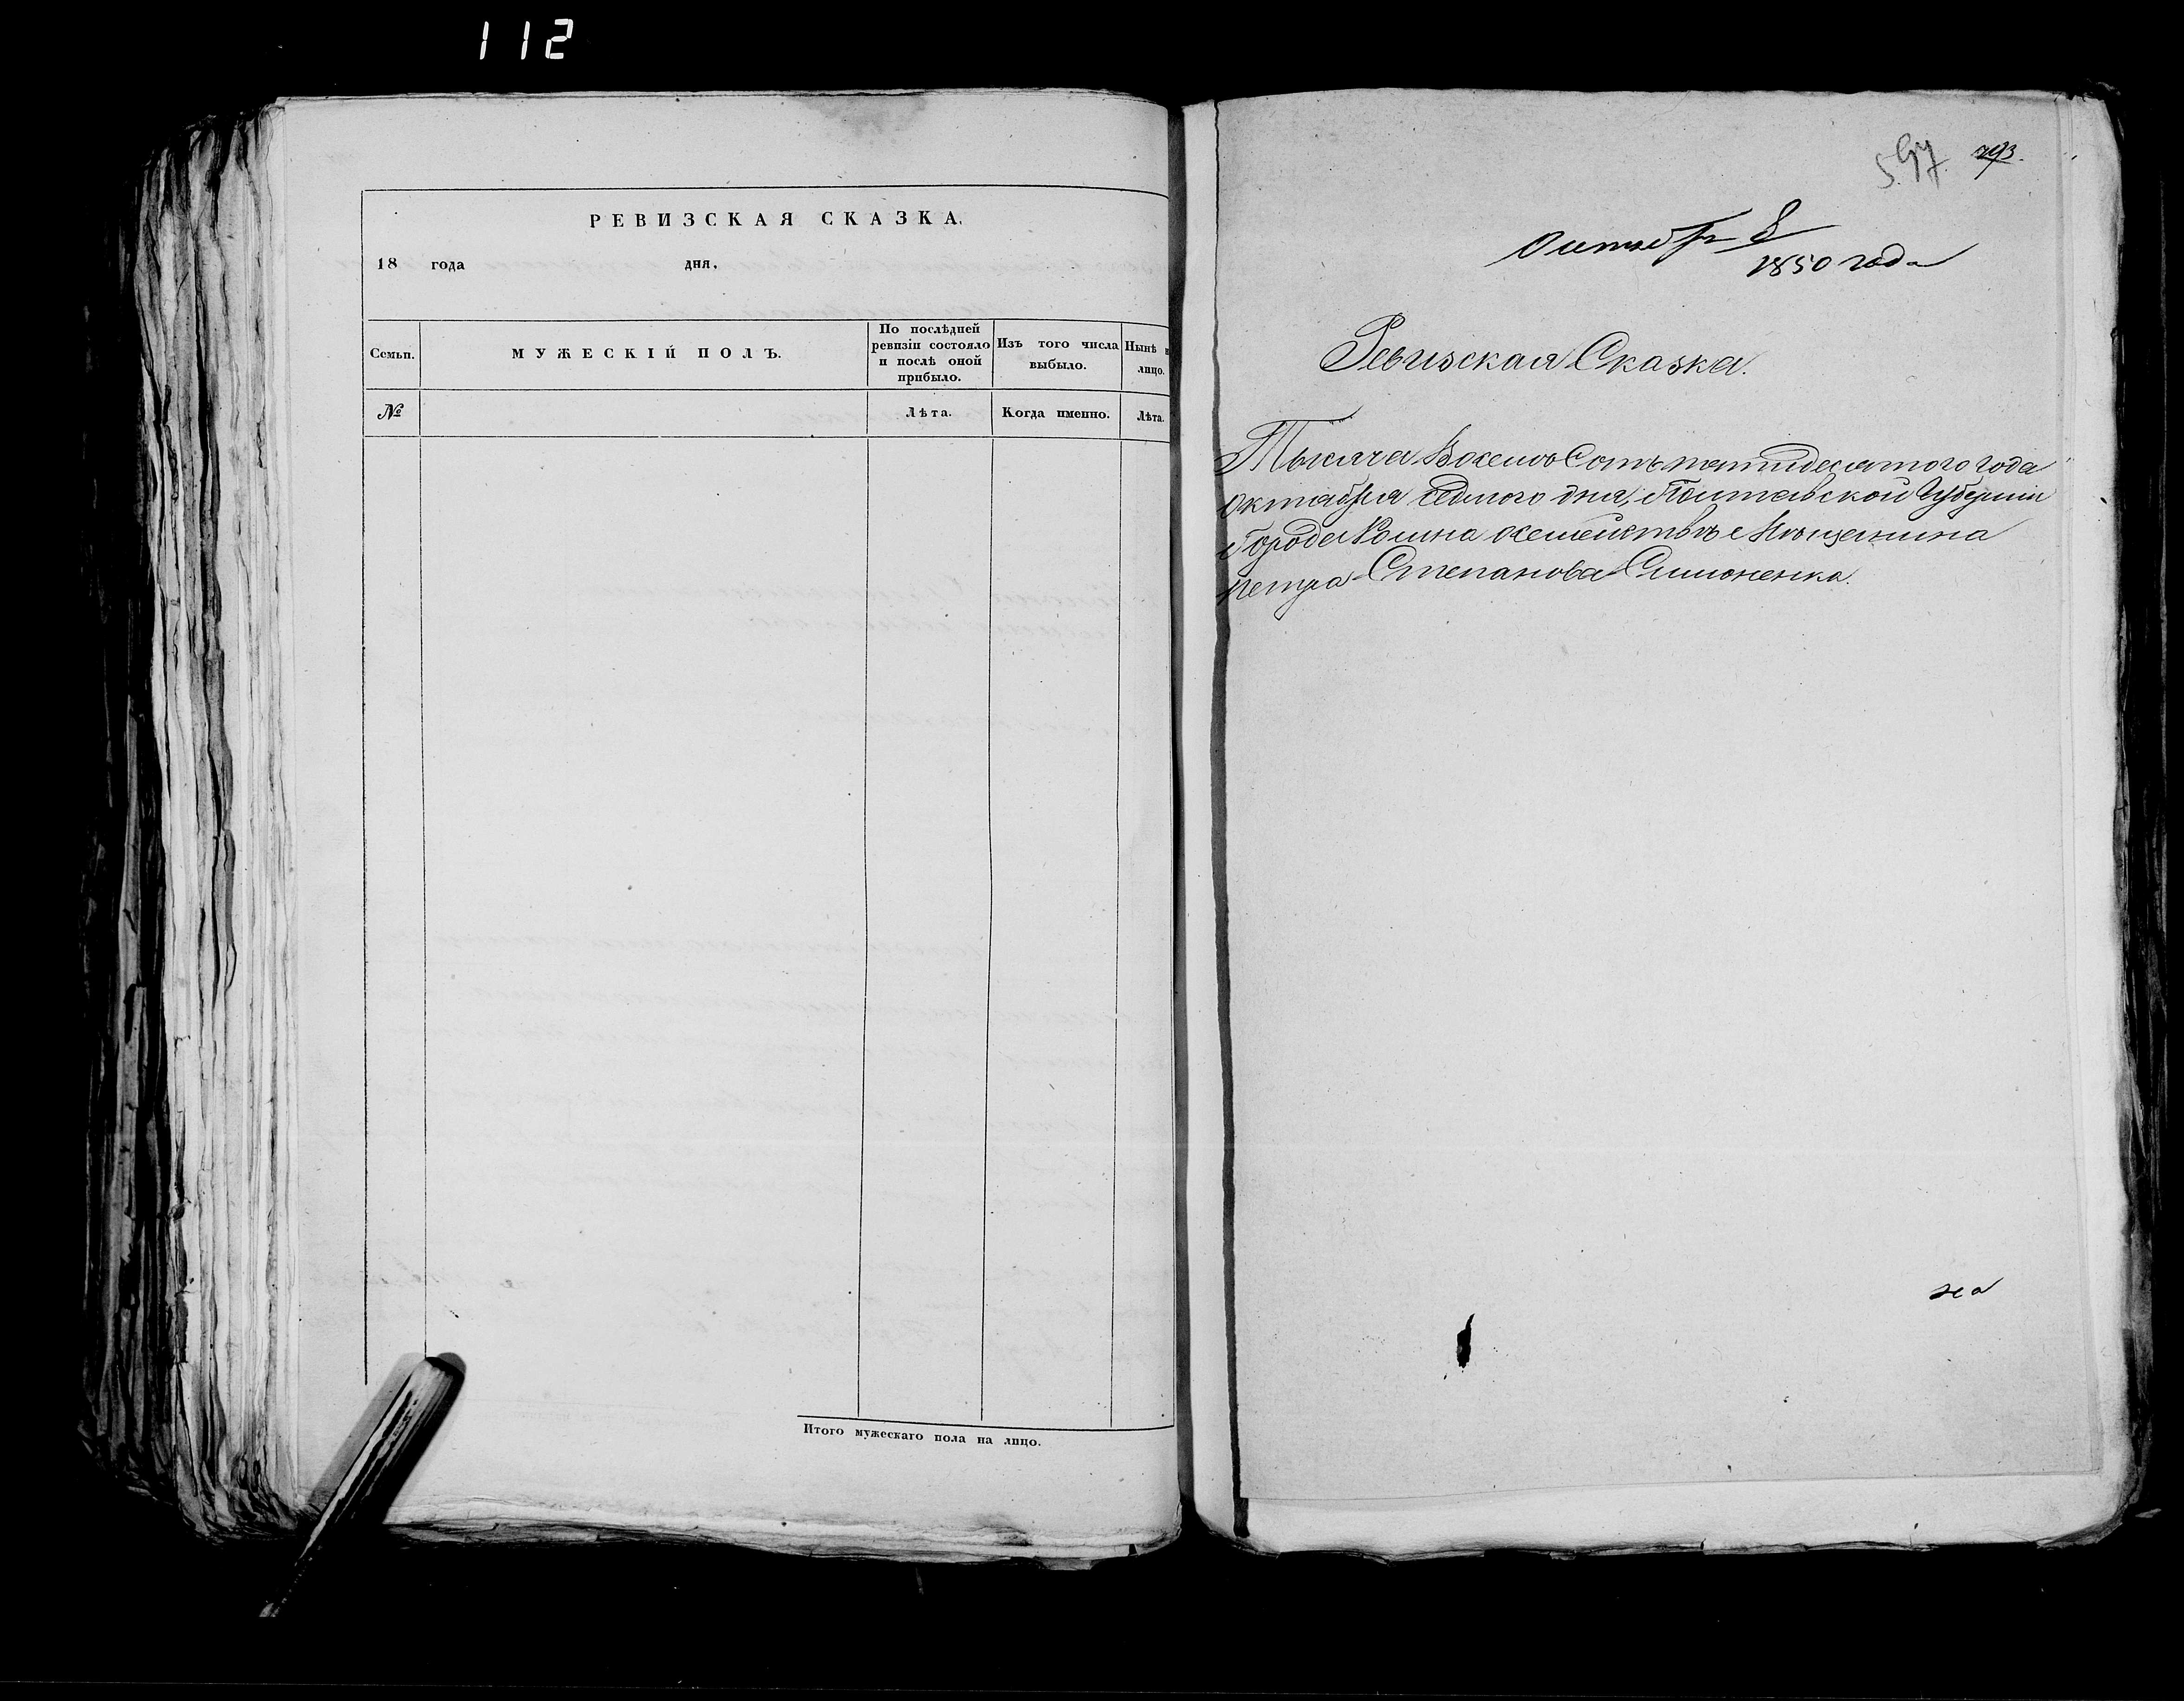 112
РЕВИЗСКАЯ СКАЗКА.
18 года дня,
Семьи.
МУЖЕСКІЙ ПОЛЪ.
По послѣдней
ревизіи состояло
и послѣ оной
прибыло.
Изъ того числа
выбыло.
Нынѣ
лицо.
№
Лѣта.
Когда именно.
Лѣта.
Итого мужескаго пола на лицо.
597. 793.
Октябр 8
1850 года
Ревизская Сказка.
Тысяча Восемь Сотъ пятидесятого года
Октября седмого дня, Полтавской Губерніи
Города Ромна о семействѣ Мѣщанина
Петра Степанова Симоненка.
на